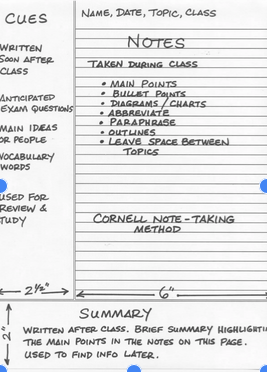 NAME, DATE, TOPIC, CLASS
CUES
WRITTEN
SOON AFTER
CLASS
ANTICIPATED
EXAM QUESTIONS
MAIN IDEAS
OR PEOPLE
VOCABULARY
WORDS
USED FOR
REVIEW &
STUDY
2½"
NOTES
TAKEN DURING CLASS
• MAIN POINTS
• BULLET POINTS
• DIAGRAMS/CHARTS
• ABBREVIATE
• PARAPHRASE
• OUTLINES
• LEAVE SPACE BETWEEN
TOPICS
CORNELL NOTE-TAKING
METHOD
6"
2"
SUMMARY
WRITTEN AFTER CLASS. BRIEF SUMMARY HIGHLIGHTI
THE MAIN POINTS IN THE NOTES ON THIS PAGE.
USED TO FIND INFO LATER.